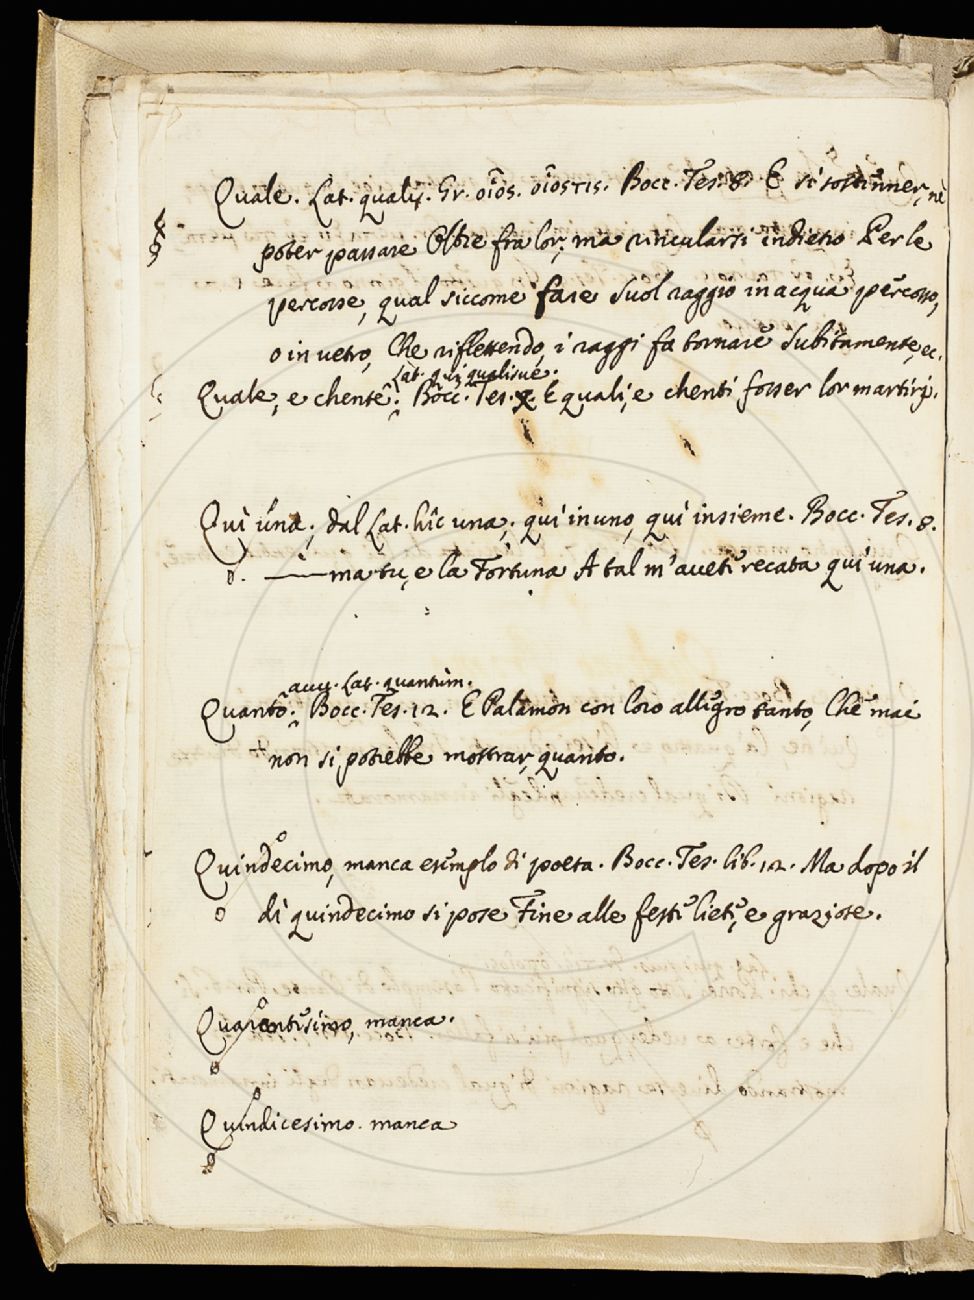 Quale. Lat. qualis. Gr. οἷος. ὁῖοστις. Bocc. Tes. 8. E si sostenner, nè
poter passare Oltre fra lor; ma rincularsi indietro Per le
percosse, qual siccome fare Suol raggio in acqua percosso,
o in vetro, Che riflettendo, i raggi fa tornare subitamente, ec.
Lat. qui qualisve.
Quale, e chente. Bocc. Tes. E quali, e chenti fosser lor martirj.
Quì una; dal Lat. hic una; quì in uno, quì insieme. Bocc. Tes. 8.
ma tu, e la Fortuna A tal m'avete recata quì una.
avv. Lat. quantum.
Quanto. Bocc. Tes. 12. E Palamon con loro allegro tanto, Che mai
non si potrebbe mostrar, quanto.
Quindecimo, manca esemplo di poeta. Bocc. Tes. lib. 12. Ma dopo il
dì quindecimo si pose Fine alle feste liete, e graziose.
Quarentesimo, manca.
Quindicesimo. manca